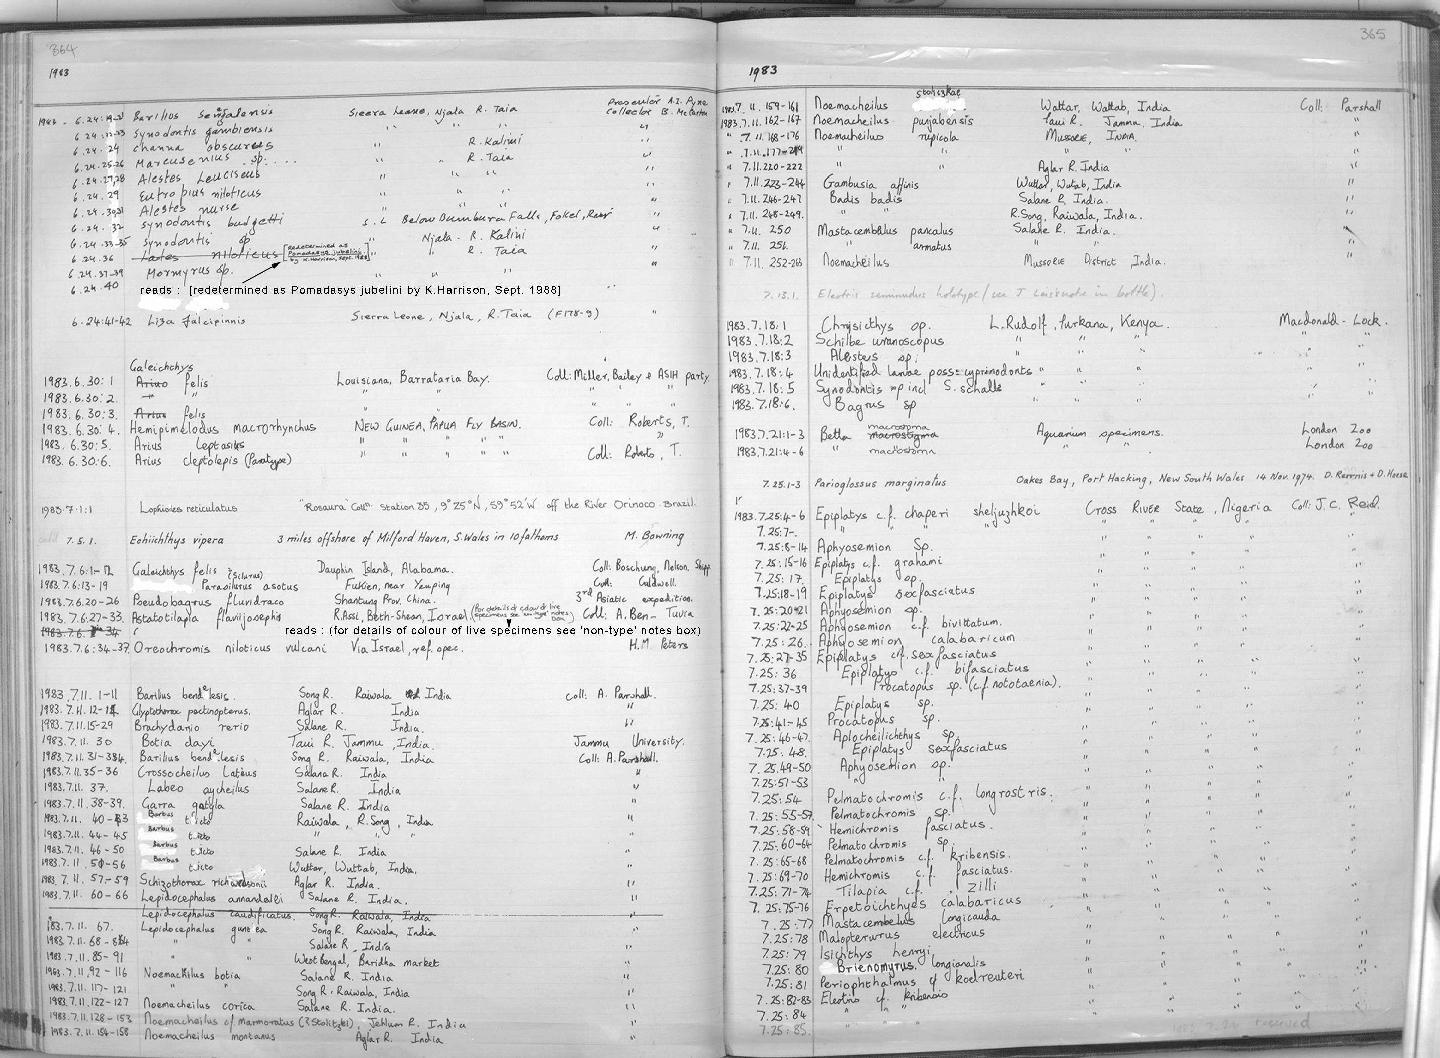 364
1983
Presenter A.I. Payne
1983 - 6.24:19-31 Barilius Senegalensis Sierra Leone, Njala R. Taia Collector B. McCarton
6.24 Synodontis gambiensis " " " "
6.24.24 Channa obscurus " R. Kalini "
6.24.25-26 Marcusenius sp. .... " " R. Taia "
6.24.27,28 Alestes Leuciscus " " " "
6.24.29 Eutropius niloticus " " " "
6.24.30,31 Alestes nurse " " " "
6.24.32 Synodontis budgetti S.L Below Dumbura Falls, "
6.24.33-35 Synodontis sp " Njala - R. Kalini "
6.24.36 Lates niloticus [redetermined as Pomadasys jubelini by K.Harrison, Sept. 1988] " R. Taia "
6.24.37-39 Mormyrus sp. " " " "
6.24.40
reads : [redetermined as Pomadasys jubelini by K.Harrison, Sept. 1988]
6.24:41-42 Liza falcipinnis Sierra Leone, Njala, R. Taia (F178-9) "
Galeichthys
1983.6.30:1 Arius felis Louisiana, Barrataria Bay. Coll: Miller, Bailey & ASIH party
1983.6.30:2. " " " " " " "
1983.6.30:3. Arius felis " " " " "
1983.6.30:4. Hemipimelodus macrorhynchus NEW GUINEA, PAPUA FLY BASIN. Coll: Roberts, T.
1983.6.30:5. Arius leptaspis " " " " " "
1983.6.30:6. Arius cleptolepis (Paratype) " " " " " Coll: Roberts, T.
1983.7.1:1 Lophiodes reticulatus "Rosaura" Colln Station 35, 9° 25" N, 59° 52' W off the River Orinoco. Brazil.
7.5.1. Echiichthys vipera 3 miles offshore of Milford Haven, S. Wales in 10 fathoms M. Bowning
1983.7.6:1-12 Galeichthys felis Dauphin Island, Alabama. Coll: Boschung, Nelson, Shipp
1983.7.6:13-19 Parasilurus (Silurus) asotus Fukien, near Yenping Coll: Caldwell.
1983.7.6.20-26 Pseudobagrus fluvidraco Shantung Prov. China. 3rd Asiatic expedition.
1983.7.6.27-33. Astatotilapia flaviijosephis R. Assi, Beth-Shean, Israel (for details of colour of live specimens see 'non-type' notes box) Coll: A. Ben-Tuvia
reads : (for details of colour of live specimens see 'non-type' notes box)
1983.7.6:34-37 Oreochromis niloticus vulcani Via Israel, ref. opec. H.M. Peters
1983.7.11.1-11 Barilius bendelesis. Song R. Raiwala India Coll: A. Parshall.
1983.7.11.12-14 Glyptothorax pectinopterus. Aglar R. India "
1983.7.11.15-29 Brachydanio rerio Salane R. India. "
1983.7.11.30 Botia dayi Taui R. Jammu, India. Jammu University.
1983.7.11.31-34 Barilius bendelesis Song R. Raiwala, India Coll: A. Parshall.
1983.7.11.35-36 Crossocheilus Latius Salana R. India "
1983.7.11.37. Labeo aycheilus Salane R. India "
1983.7.11.38-39. Garra gotyla Salane R. India "
1983.7.11.40-43 Barbus t.icto Raiwala, R. Song, India "
1983.7.11.44-45 Barbus t.icto " " " "
1983.7.11.46-50 Barbus t.icto Salane R. India "
1983.7.11.50-56 Barbus t.icto Wuttar, Wuttab, India. "
1983.7.11.57-59 Schizothorax richardsonii Aglar R. India. "
1983.7.11.60-66 Lepidocephalus annandalei Salane R. India. "
Lepidocephalus caudificatus. Song R. Raiwala, India
1983.7.11.67. Lepidocephalus guntea Song R. Raiwala, India "
1983.7.11.68-84 " " Salane R. India "
1983.7.11.85-91 " " West Bengal, Baridha market "
1983.7.11.92-116 Noemachilus botia Salane R. India "
1983.7.11.117-121 " " Song R. Raiwala, India "
1983.7.11.122-127 Noemacheilus corica Salane R. India. "
1983.7.11.128-153 Noemacheilus cf marmoratus (? Stolitzki), Jehlum R. India "
1983.7.11.154-158 Noemacheilus montanus Aglar R. India "
365
1983
1983.7.11.159-161 Noemacheilus stoliczkae Wattar, Wattab, India Coll: Parshall
1983.7.11.162-167 Noemacheilus punjabensis Taui R. Jammu, India "
" 7.11.168-176 Noemacheilus rupicola MUSSORIE, INDIA "
" 7.11.177-219 " " " " "
" 7.11.220-222 " " Aglar R. India "
" 7.11.223-244 Gambusia affinis Wuttar, Wutab, India "
" 7.11.246-247 Badis badis Salane R. India. "
" 7.11.248-249. " " R. Song, Raiwala, India. "
" 7.11.250 Mastacembalus pancalus Salane R. India. "
" 7.11.251. " armatus " " "
" 7.11.252-263 Noemacheilus Mussorie District India. "
7.13.1. Eleotris seminudus holotype / see J Leis's note in bottle).
1983.7.18:1 Chrysicthys sp. L. Rudolf, Turkana, Kenya. Macdonald-Lock.
1983.7.18:2 Schilbe uranoscopus " " " "
1983.7.18:3 Alestes sp. " " " "
1983.7.18:4 Unidentified larvae poss = cyprinodonts " " " "
1983.7.18:5 Synodontis sp incl S. schalle " " " "
1983.7.18:6. Bagrus sp " " " "
1983.7.21:1-3 Betta macrostigma macrostoma Aquarium specimens. London Zoo
1983.7.21:4-6 " macrostoma " " London Zoo
7.25.1-3 Parioglossus marginatus Oakes Bay, Port Hacking, New South Wales 14 Nov. 1974. D. Rennis + D. Hoese
1983.7.25:4-6 Epiplatys c.f. chaperi sheljuzhkoi Cross River State, Nigeria Coll: J.C. Reid.
7.25:7- " " " " " " "
7.25:8-14 Aphyosemion Sp. " " " "
7.25:15-16 Epiplatys c.f. grahami " " " "
7.25:17. Epiplatys sp. " " " "
7.25:18-19 Epiplatys sexfasciatus " " " "
7.25:20-21 Aphyosemion sp. " " " "
7.25:22-25 Aphyosemion c.f. bivittatum. " " " "
7.25:26. Aphyosemion calabaricum " " " "
7.25:27-35 Epiplatys c.f. sexfasciatus " " " "
7.25:36 Epiplatys c.f. bifasciatus " " " "
7.25:37-39 Procatopus sp. (c.f. nototaenia). " " " "
7.25:40 Epiplatys sp. " " " "
7.25:41-45 Procatopus sp. " " " "
7.25:46-47. Aplocheilichthys sp. " " " "
7.25:48. Epiplatys sexfasciatus " " " "
7.25.49-50 Aphyosemion sp. " " " "
7.25:51-53 " " " " " "
7.25:54 Pelmatochromis c.f. longrostris. " " " "
7.25:55-57 Pelmatochromis sp. " " " "
7.25:58-59 Hemichromis fasciatus. " " " "
7.25:60-64 Pelmatochromis sp. " " " "
7.25:65-68 Pelmatochromis c.f. kribensis. " " " "
7.25:69-70 Hemichromis c.f. fasciatus. " " " "
7.25:71-74 Tilapia c.f. Zilli " " " "
7.25:75-76 Erpetoichthyes calabaricus " " " "
7.25:77 Mastacembelus longicauda " " " "
7.25:78 Malopterurus electricus " " " "
7.25:79 Isichthys henryi " " " "
7.25:80 Brienomyrus longianalis " " " "
7.25:81 Periophthalmus cf koelreuteri " " " "
7.25:82-83 Eleotris cf. kribensis " " " "
7.25:84 " " " " "
7.25:85. " "
1983.7.26 received